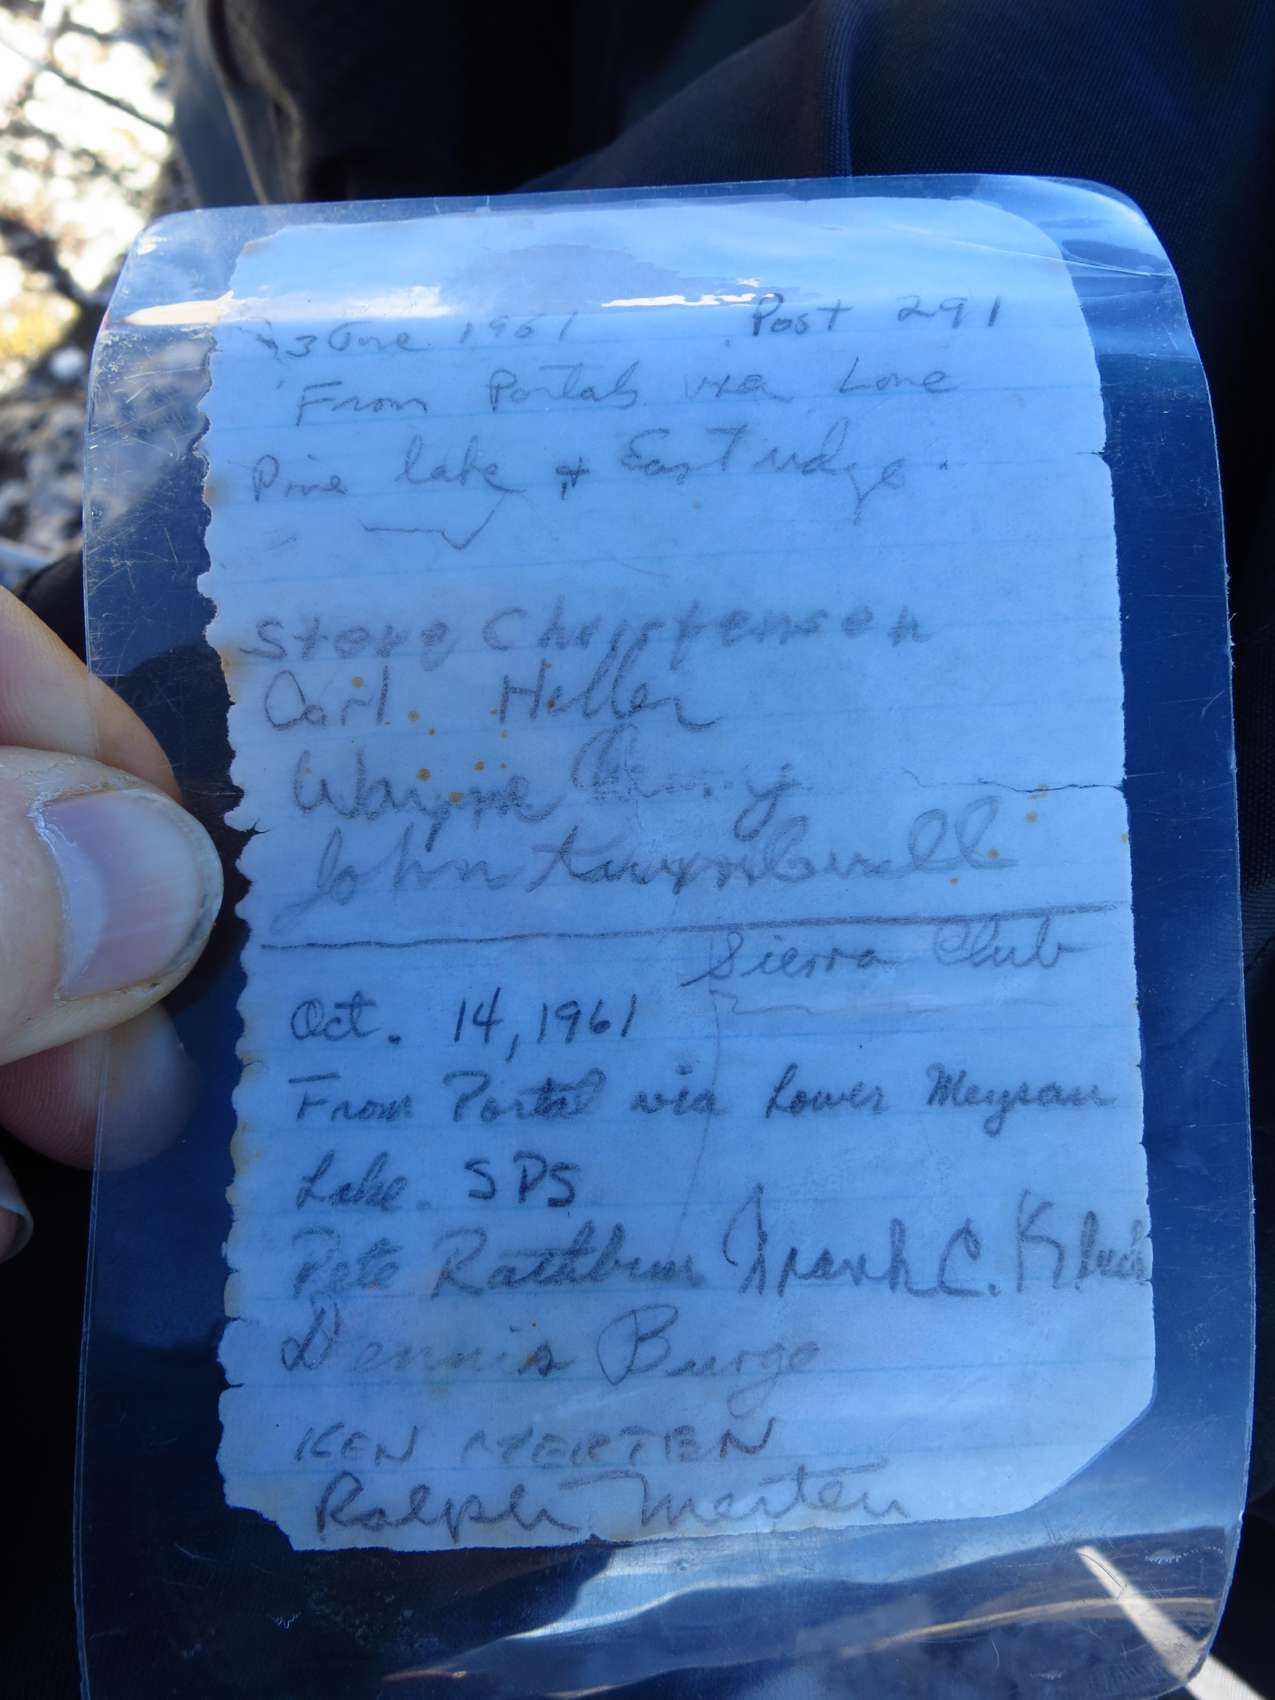 3 June 1961 Post 291
From Portals via Lone
Pine lake & East ridge.
Steve Christensen
Carl Heller
Wayne
John
Sierra Club
Oct. 14, 1961
From Portal via Lower Meysan
Lake. SPS
Pete Rathbun Frank C.
Dennis Burge
KEN MERTEN
Ralph Merten